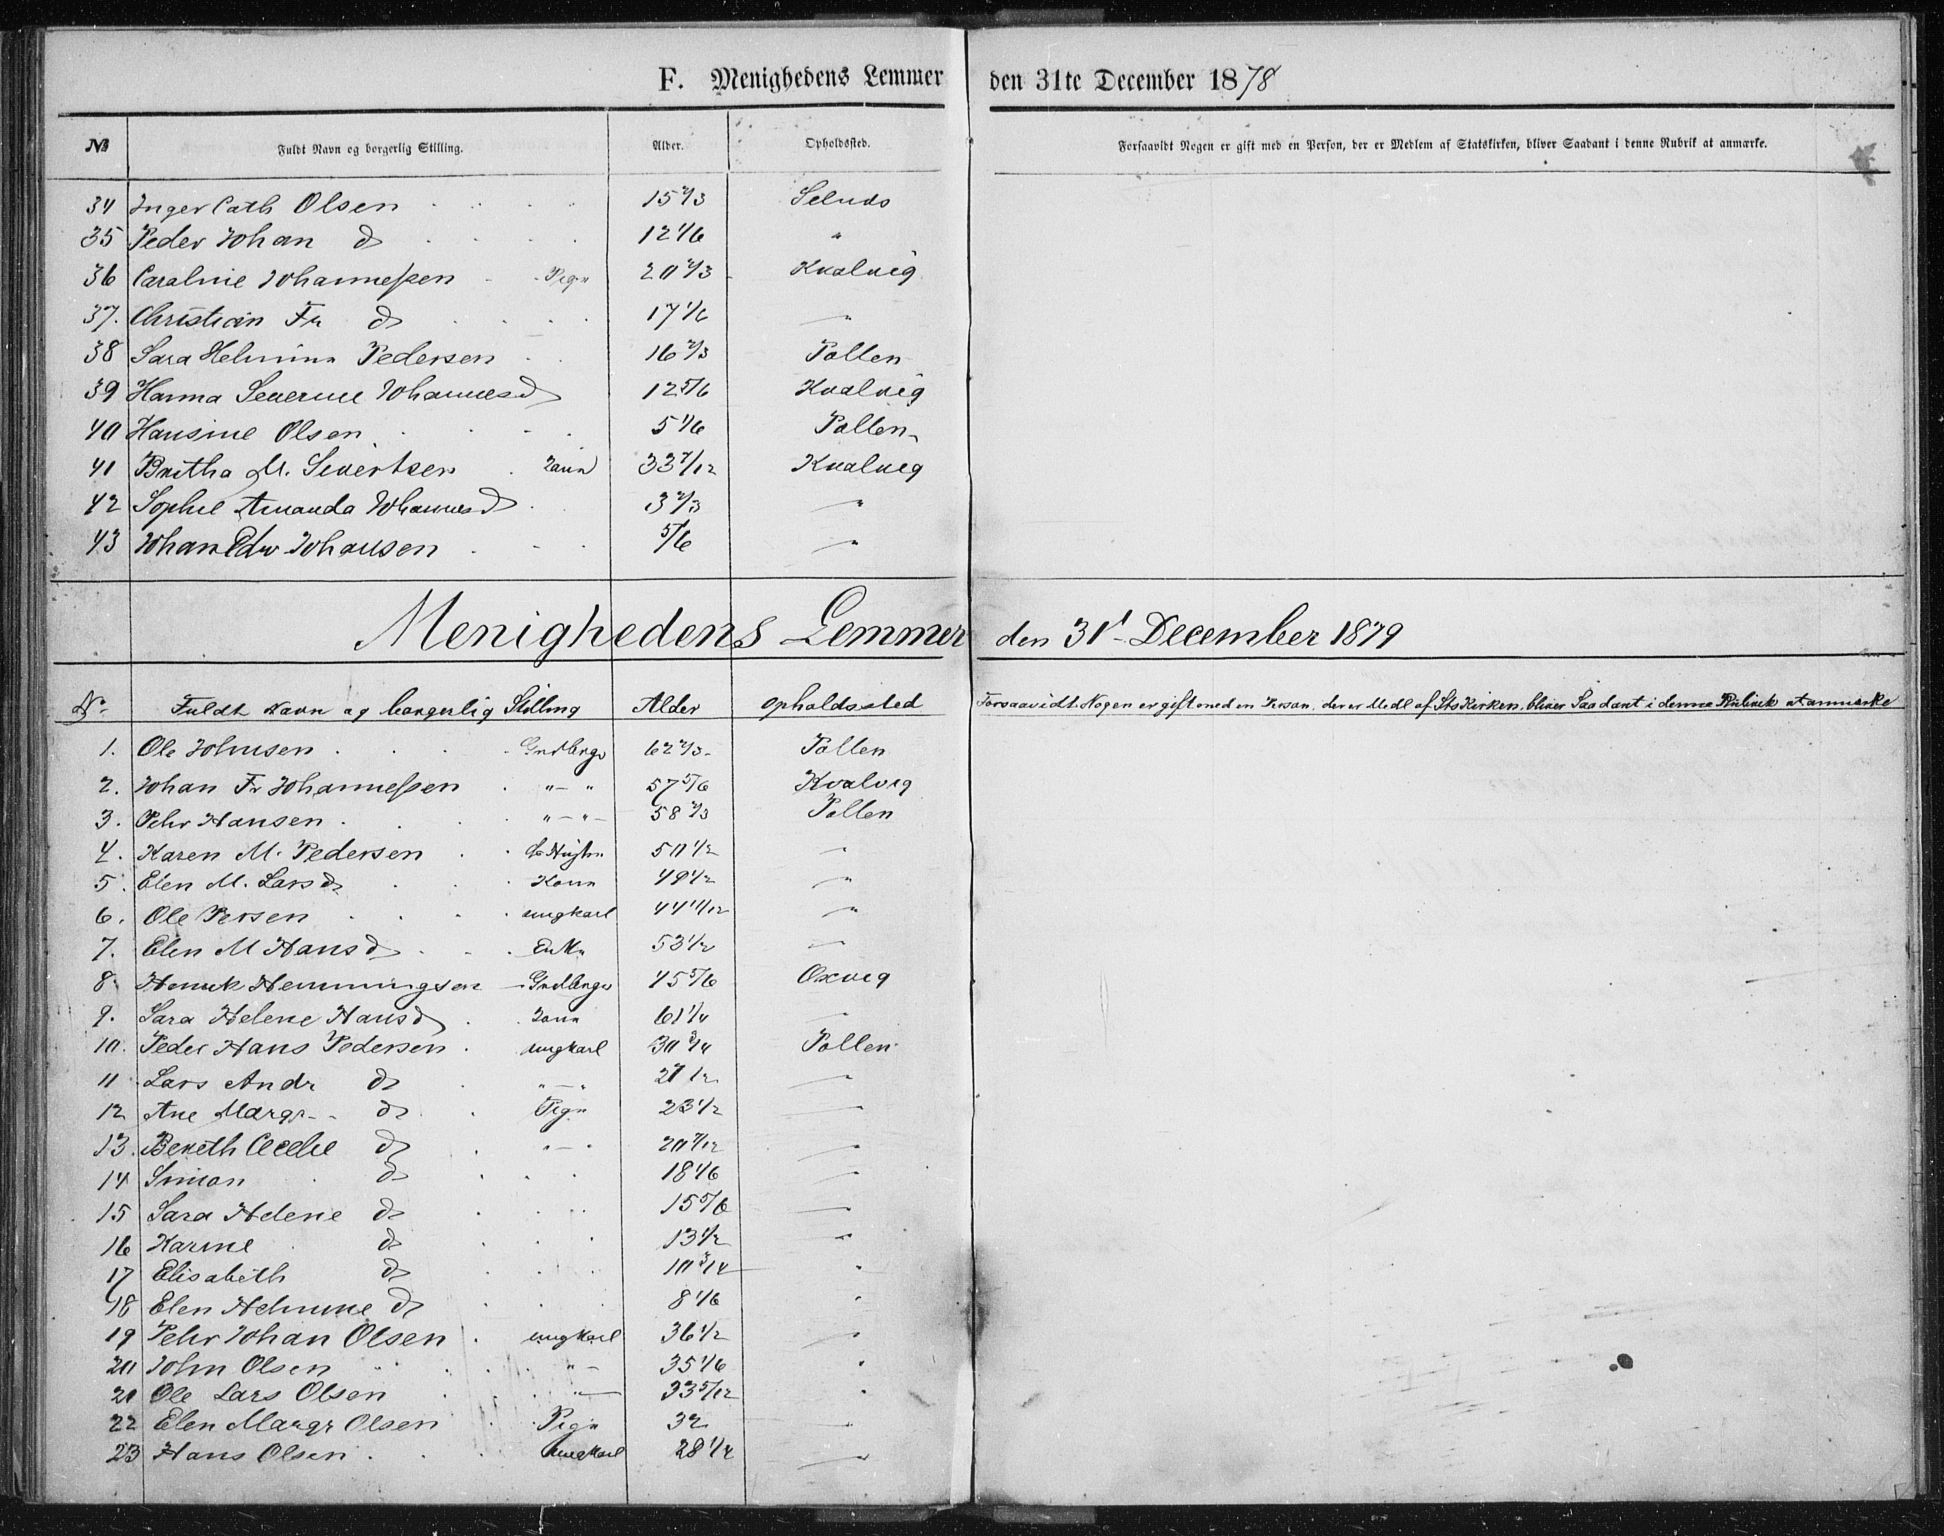 F. Menighedens Lemmer den 31te December 1878
№ Fuldt Navn og borgerlig Stilling. Alder. Opholdssted. Forsaavidt Nogen er gift med en Person, der er Medlem af Statskirken, bliver Saadant i denne Rubrik at anmærke.
34 Inger Cath Olsen 15 2/3
35 Peder Johan do 12 1/6 "
36 Caroline Johannessen Pige 20 2/3 Kvalvig
37. Christian Fr do 17 1/6 "
38 Sara Helmina Pedersen 16 2/3 Pollen
39 Hanna Severine Johannesd 12 5/6 Kvalvig
40 Hansine Olsen 5 1/6 Pollen
41 Britha M. Sivertsen Kone 33 7/12 Kvalvig
42 Sophie Amanda Johannesd 3 2/3 "
43 Johan Edv Johansen 5/6 "
Menighedens Lemmer den 31t December 1879
No. Fuldt Navn og borgerlig Stilling Alder Opholdssted Forsaavidt Nogen er gift med en Person, der er Medl af Sts Kirken, bliver Saadant i denne Rubrik at anmærke
1. Ole Johnsen Grdbrgr 62 2/3 Pollen
2. Johan Fr Johannessen " - " 57 5/6 Kvalvig
3. Pehr Hansen " - " - 58 2/3 Pollen
4. Karen M. Pedersen 50 1/2 "
5. Elen M. Larsd Kone 49 1/2 "
6. Ole Persen ungkarl 44 11/12 "
7. Elen M Hansd Enke 53 1/2 "
8. Henrik Hemmingsen Grdbrgr 45 5/6 Oxvig
9. Sara Helene Hansd Kone 61 1/4 "
10. Peder Hans Pedersen ungkarl 30 3/4 Pollen
11 Lars Andr do " - " 27 1/2 "
12 Ane Margr do Pige 23 1/2 "
13. Bereth Cecelie do " - " 20 7/12 "
14 Simon do 18 1/6 "
15 Sara Helene do 15 5/6 "
16 Karine do 13 1/2 "
17 Elisabeth do 10 3/4 "
18 Elen Helmine do 8 1/6 "
19 Pehr Johan Olsen ungkarl 36 1/2 "
20 John Olsen " - 35 1/6 "
21 Ole Lars Olsen " - 33 5/12 "
22 Elen Margr Olsen Pige 32 "
23 Hans Olsen ungkarl 28 1/2 "